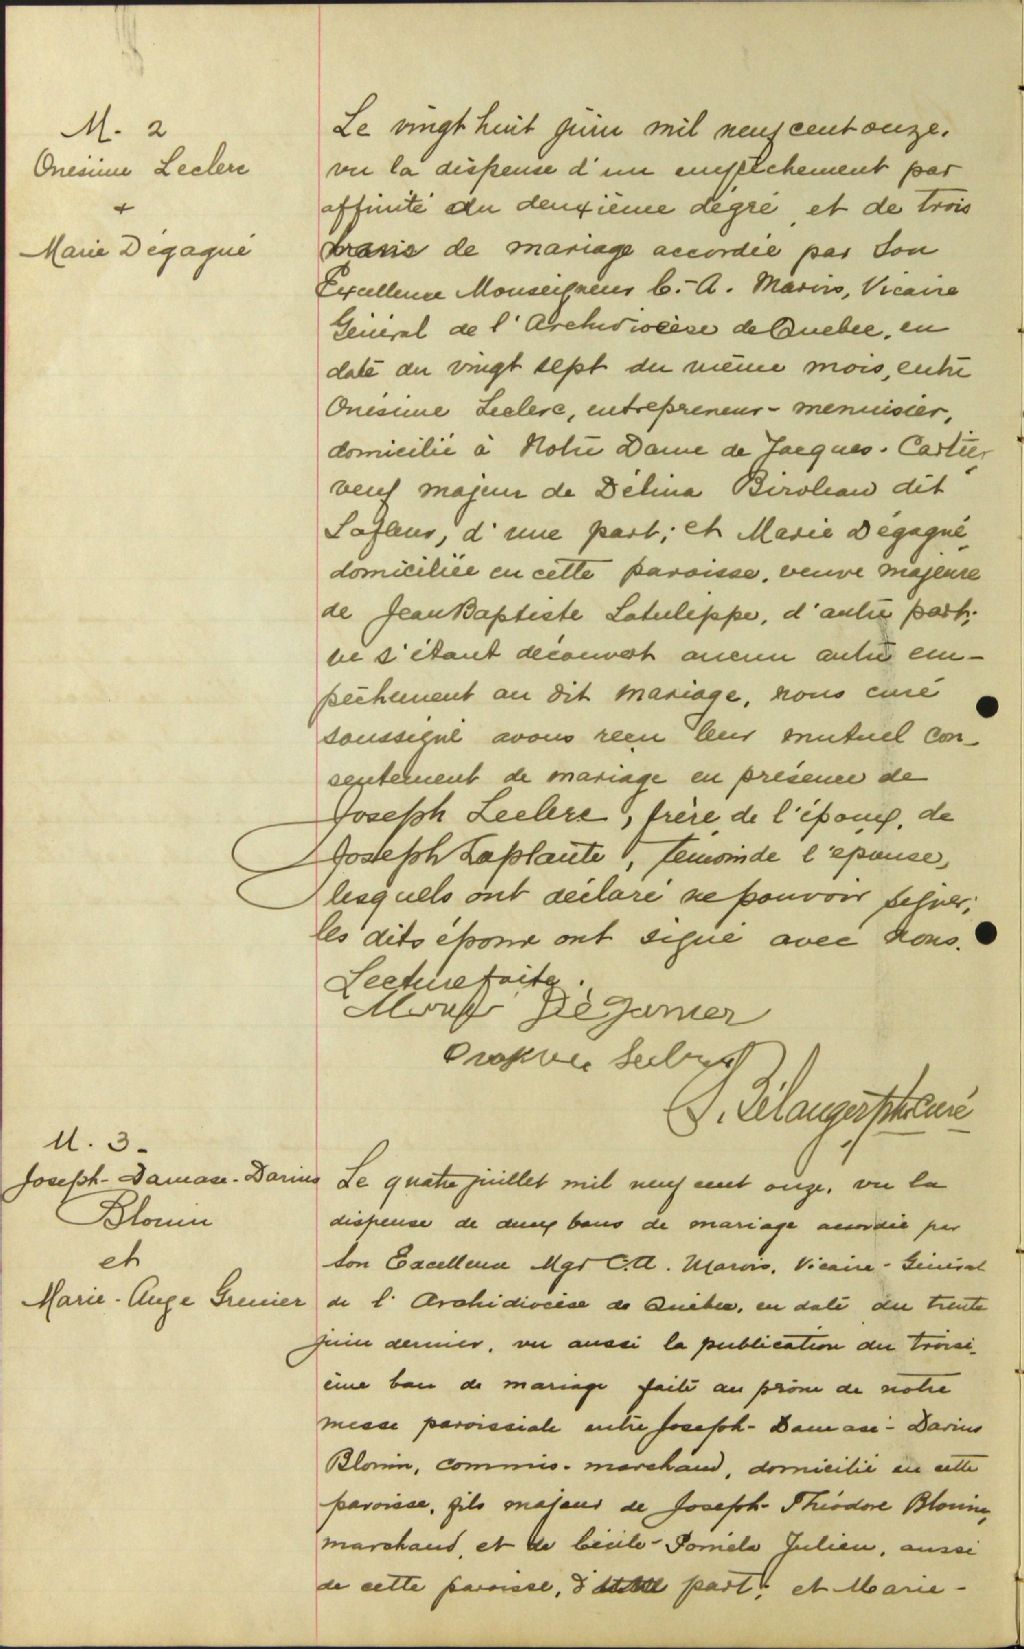 M. 2
Onésime Leclerc
+
Marie Dégagné
Le vingt huit juin mil neuf cent onze,
vu la dispense d'un empêchement par
affinité du deuxième dégré et de trois
bans de mariage accordée par Son
Excellence Monseigneur C.-A. Marois, Vicaire
Général de l'Archidiocèse de Quebec, en
daté du vingt sept du même mois, entre
Onésime Leclerc, entrepreneur-menuisier,
domicilié à Notre Dame de Jacques-Cartier,
veuf majeur de Délina Biroleau dit
Lafleur, d'une part; et Marie Dégagné,
domiciliée en cette paroisse, veuve majeure
de Jean Baptiste Latulippe, d'autre part;
ne s'étant découvert aucun autre em-
pêchement au dit mariage, nous curé
soussigné avons reçu leur mutuel con-
sentement de mariage en présence de
Joseph Leclerc, frère de l'époux, de
Joseph Laplante, témoin de l'épouse,
lesquels ont déclaré ne pouvoir signer;
les dits époux ont signé avec nous.
Lecture faite.
S. Bélanger, ptre Curé
M. 3-
Joseph-Damase-Darius
Blouin
et
Marie-Ange Grenier
Le quatre juillet mil neuf cent onze, vu la
dispense de deux bans de mariage accordée par
Son Excellence Mgr C.A. Marois, Vicaire-Général
de l'Archidiocèse de Québec, en daté du trente
juin dernier, vu aussi la publication du troisi-
ème ban de mariage faite au prône de notre
messe paroissiale entre Joseph-Damase-Darius
Blouin, commis-marchand, domicilié en cette
paroisse, fils majeur de Joseph-Théodore Blouin,
marchand, et de Cécile-Paméla Julien, aussi
de cette paroisse, d'une part; et Marie-